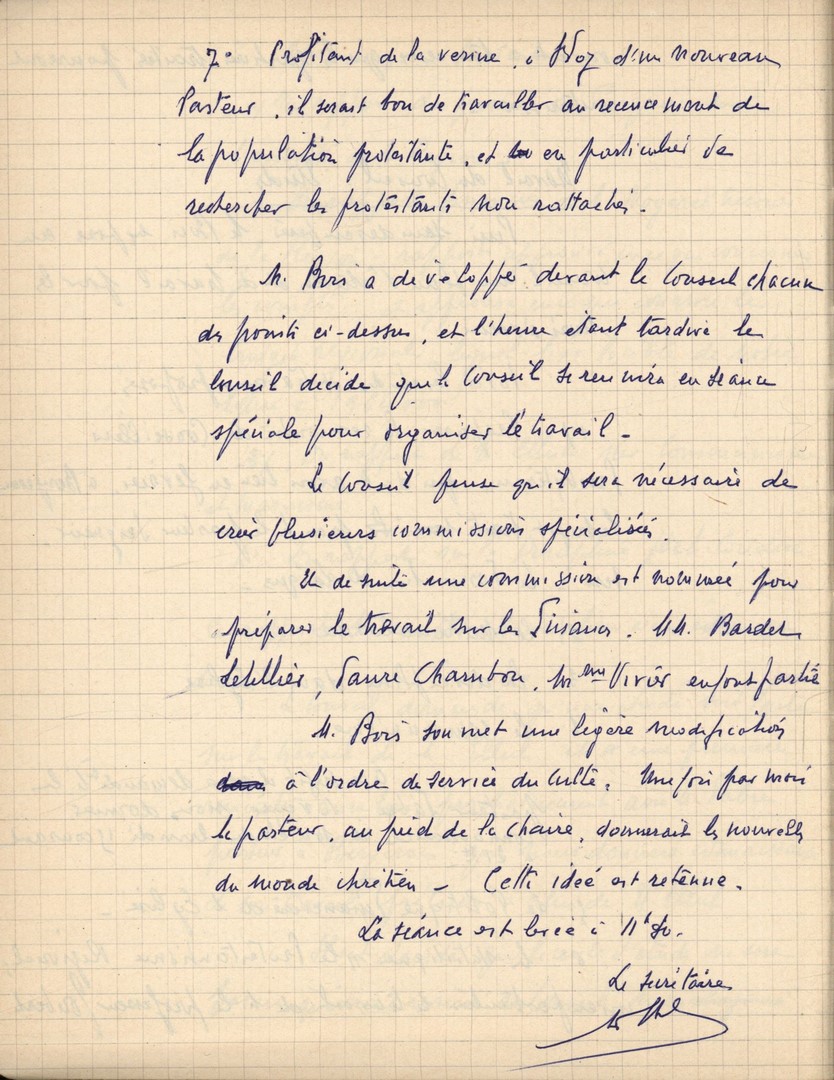 7° Profitant de la venue, à d'un nouveau
Pasteur, il serait bon de travailler au recencement de
la population protestante, et en particulier de
rechercher les protestants non rattachés.
M. Bois a développé devant le Conseil chacun
des points ci-dessus, et l'heure étant tardive le
Conseil décide que le Conseil se reunira en séance
spéciale pour organiser le travail -
Le Conseil pense qu'il sera nécessaire de
créer plusieurs commissions spécialisées.
de suite une commission est nommée pour
préparer le travail sur les Finances. MM. Bardet
Letellier, Faure Chambon, Mme Vivier en font partie
M. Bois soumet une légère modification
dans à l'ordre de service du culte. Une fois par mois
le pasteur, au pied de la chaire, donnerait les nouvelles
du monde chrétien - Cette idée est retenue.
La séance est levée à
Le secrétaire